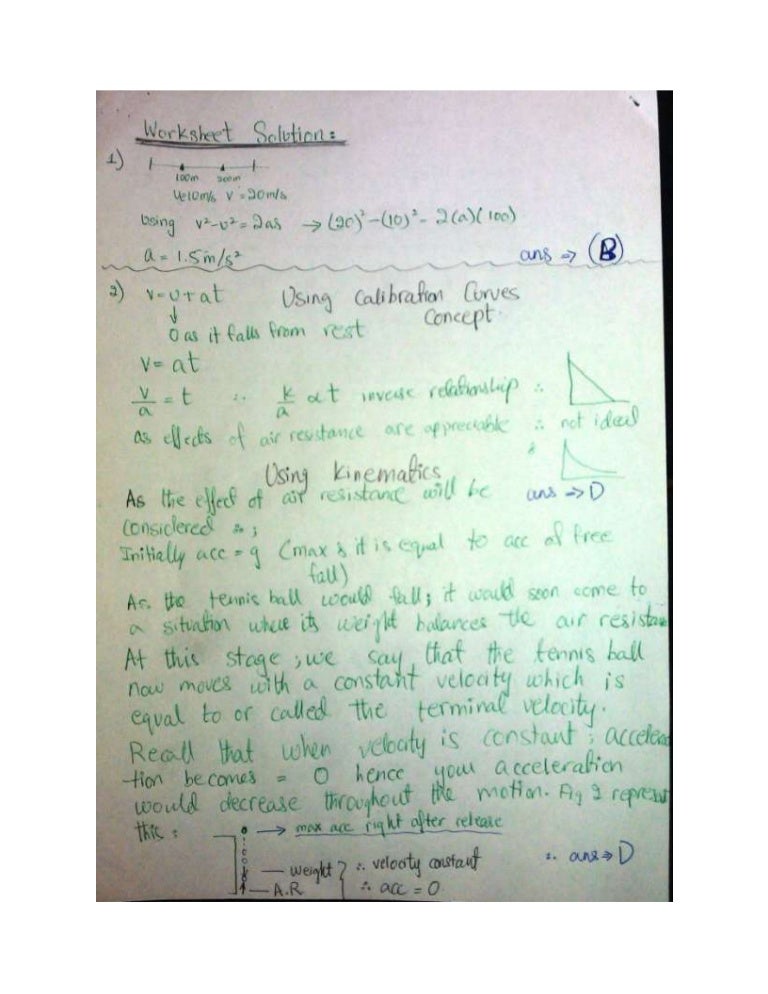 Worksheet Solution:
1)
100m 200m
U=10m/s V=20m/s
Using v²-u² = 2as → (20)² - (10)² = 2(a)(100)
a = 1.5m/s² ans ⇒ (B)
2) v=u+at Using Calibration Curves
Concept
↓
0 as it falls from rest
v= at
v/a = t ∴ k/a ∝ t inverse relationship ∴
as effects of air resistance are appreciable ∴ not ideal
Using Kinematics
As the effect of air resistance will be ans ⇒ D
considered ∴;
Initially acc = g (max & it is equal to acc of free
fall)
As the tennis ball would fall; it would soon come to
a situation where its weight balances the air resistan
At this stage; we say that the tennis ball
now moves with a constant velocity which is
equal to or called the terminal velocity.
Recall that when velocity is constant; accelera
-tion becomes = 0 hence your acceleration
would decrease throughout the motion. Fig 2 represent
this:
→ max acc right after release
— weight } ∴ velocity constant ∴ ans ⇒ D
— A.R ∴ acc = 0